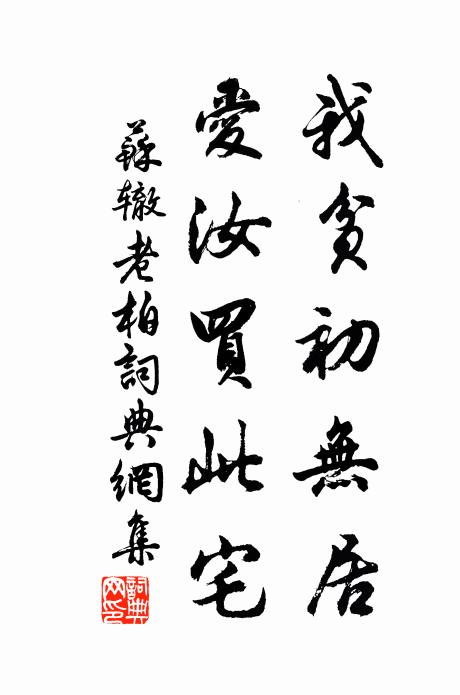 我貧初無居
愛汝買此宅
蘇辙老柏詞典網集
詞典網印